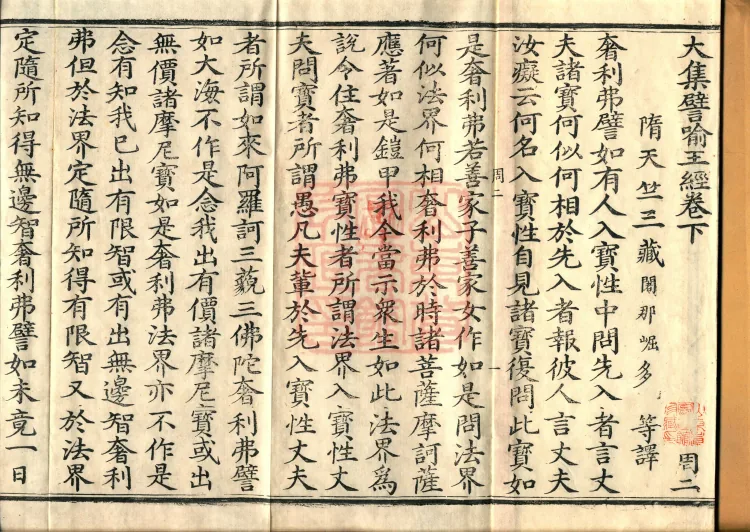 大集譬喻王經卷下
隋天竺三藏闍那崛多等譯
周二
奢利弗譬如有人入寶性中問先入者言丈
夫諸寶何似何相於先入者報彼人言丈夫
汝癡云何名入寶性自見諸寶復問此寶如
是奢利弗若善家子善家女作如是問法界
周二
一
何似法界何相奢利弗於時諸菩薩摩訶薩
應著如是鎧甲我今當示衆生如此法界為
說令住奢利弗寶性者所謂法界入寶性丈
夫問寶者所謂愚凡夫輩於先入寶性丈夫
者所謂如來阿羅訶三藐三佛陀奢利弗譬
如大海不作是念我出有價諸摩尼寶或出
無價諸摩尼寶如是奢利弗法界亦不作是
念有知我已出有限智或有出無邊智奢利
弗但於法界定隨所知得有限智又於法界
定隨所知得無邊智奢利弗譬如未竟一日